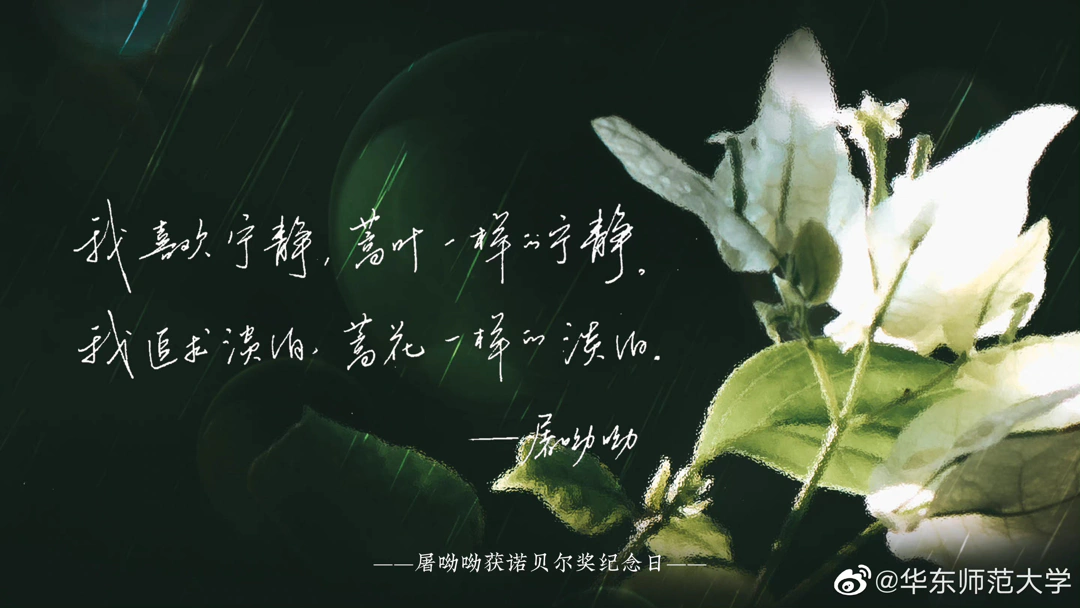 我喜欢宁静,蒿叶一样的宁静。
我追求淡泊,蒿花一样的淡泊.
——屠呦呦
——屠呦呦获诺贝尔奖纪念日——
@华东师范大学